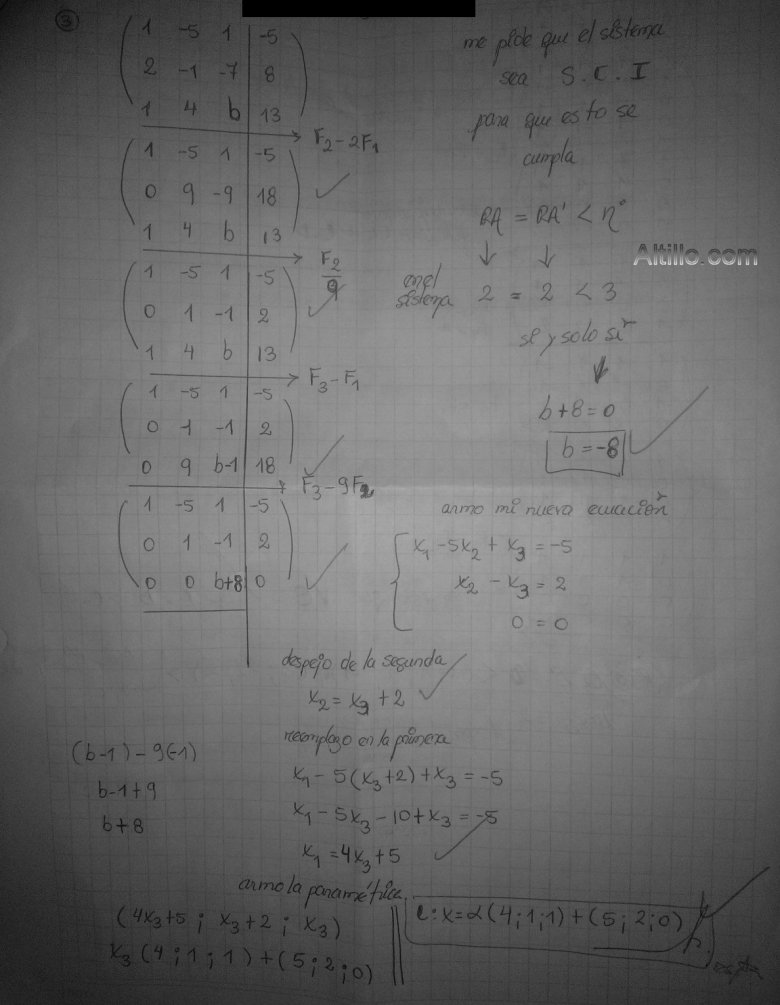 3
1 -5 1 -5
2 -1 -7 8
1 4 b 13
F2 - 2F1
1 -5 1 -5
0 9 -9 18
1 4 b 13
F2/9
1 -5 1 -5
0 1 -1 2
1 4 b 13
F3 - F1
1 -5 1 -5
0 1 -1 2
0 9 b-1 18
F3 - 9F2
1 -5 1 -5
0 1 -1 2
0 0 b+8 0
me pide que el sistema
sea S.C.I
para que esto se
cumpla
RA = RA' < nº
Altillo.com
en el
sistema 2 = 2 < 3
si y solo si
b+8=0
b=-8
armo mi nueva ecuación
x1 -5x2 + x3 = -5
x2 - x3 = 2
0 = 0
despejo de la segunda
x2 = x3 + 2
reemplazo en la primera
x1 - 5(x3+2) + x3 = -5
x1 - 5x3 - 10 + x3 = -5
x1 = 4x3 + 5
(b-1) - 9(-1)
b-1+9
b+8
armo la paramétrica
(4x3+5 ; x3+2 ; x3)
x3 (4;1;1) + (5;2;0)
: x = α(4;1;1) + (5;2;0)